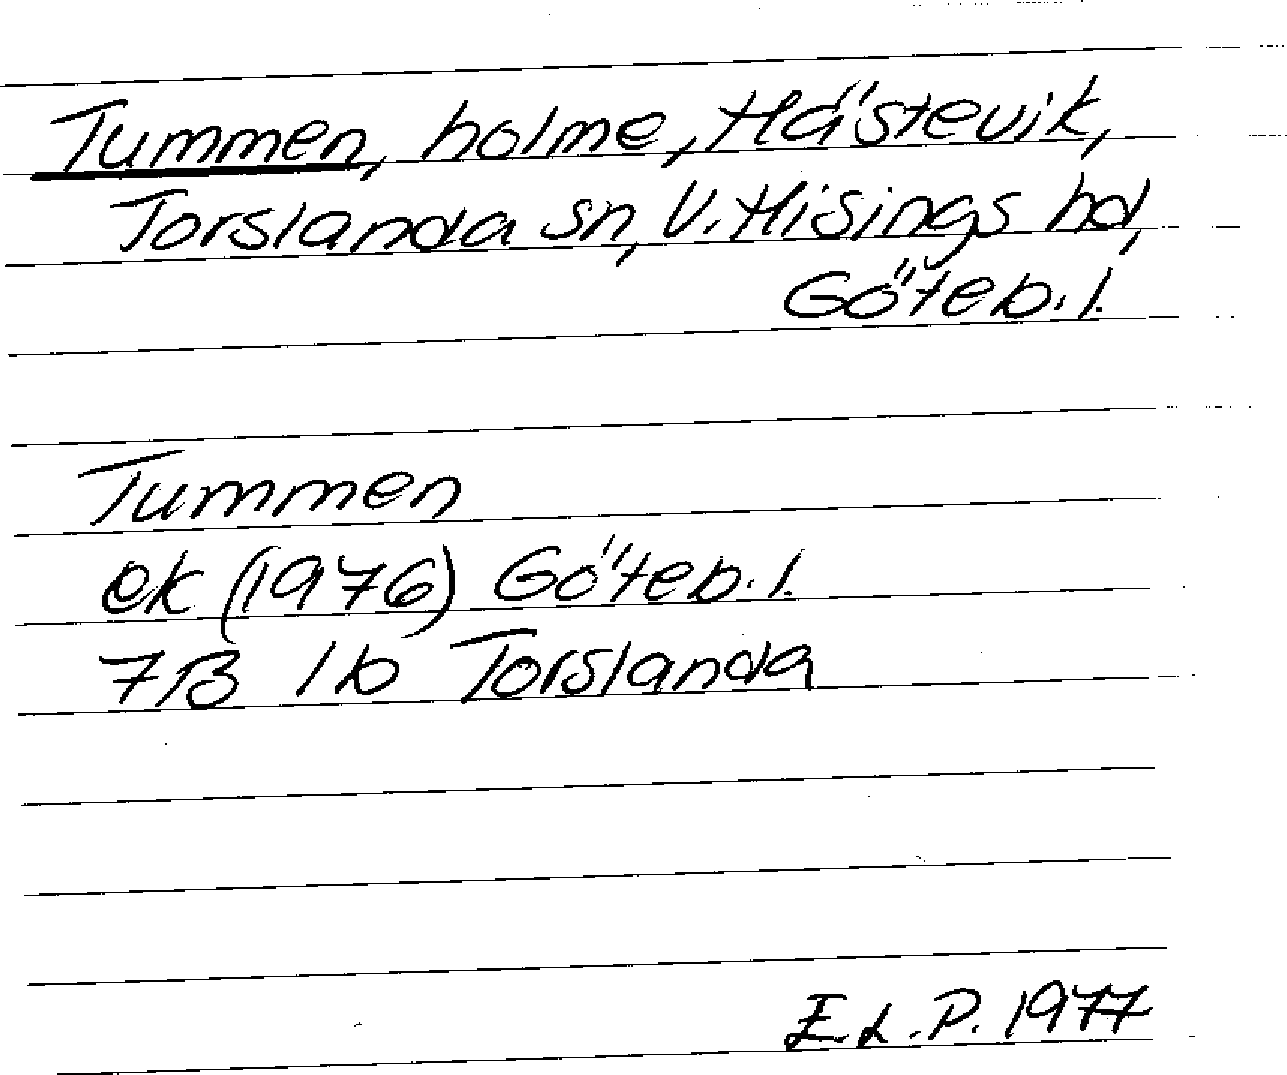 Tummen, holme, Hästevik,
Torslanda sn, V. Hisings hd,
Göteb. l.
Tummen
ek (1976) Göteb. l.
7B 1b Torslanda
E.L.P. 1977